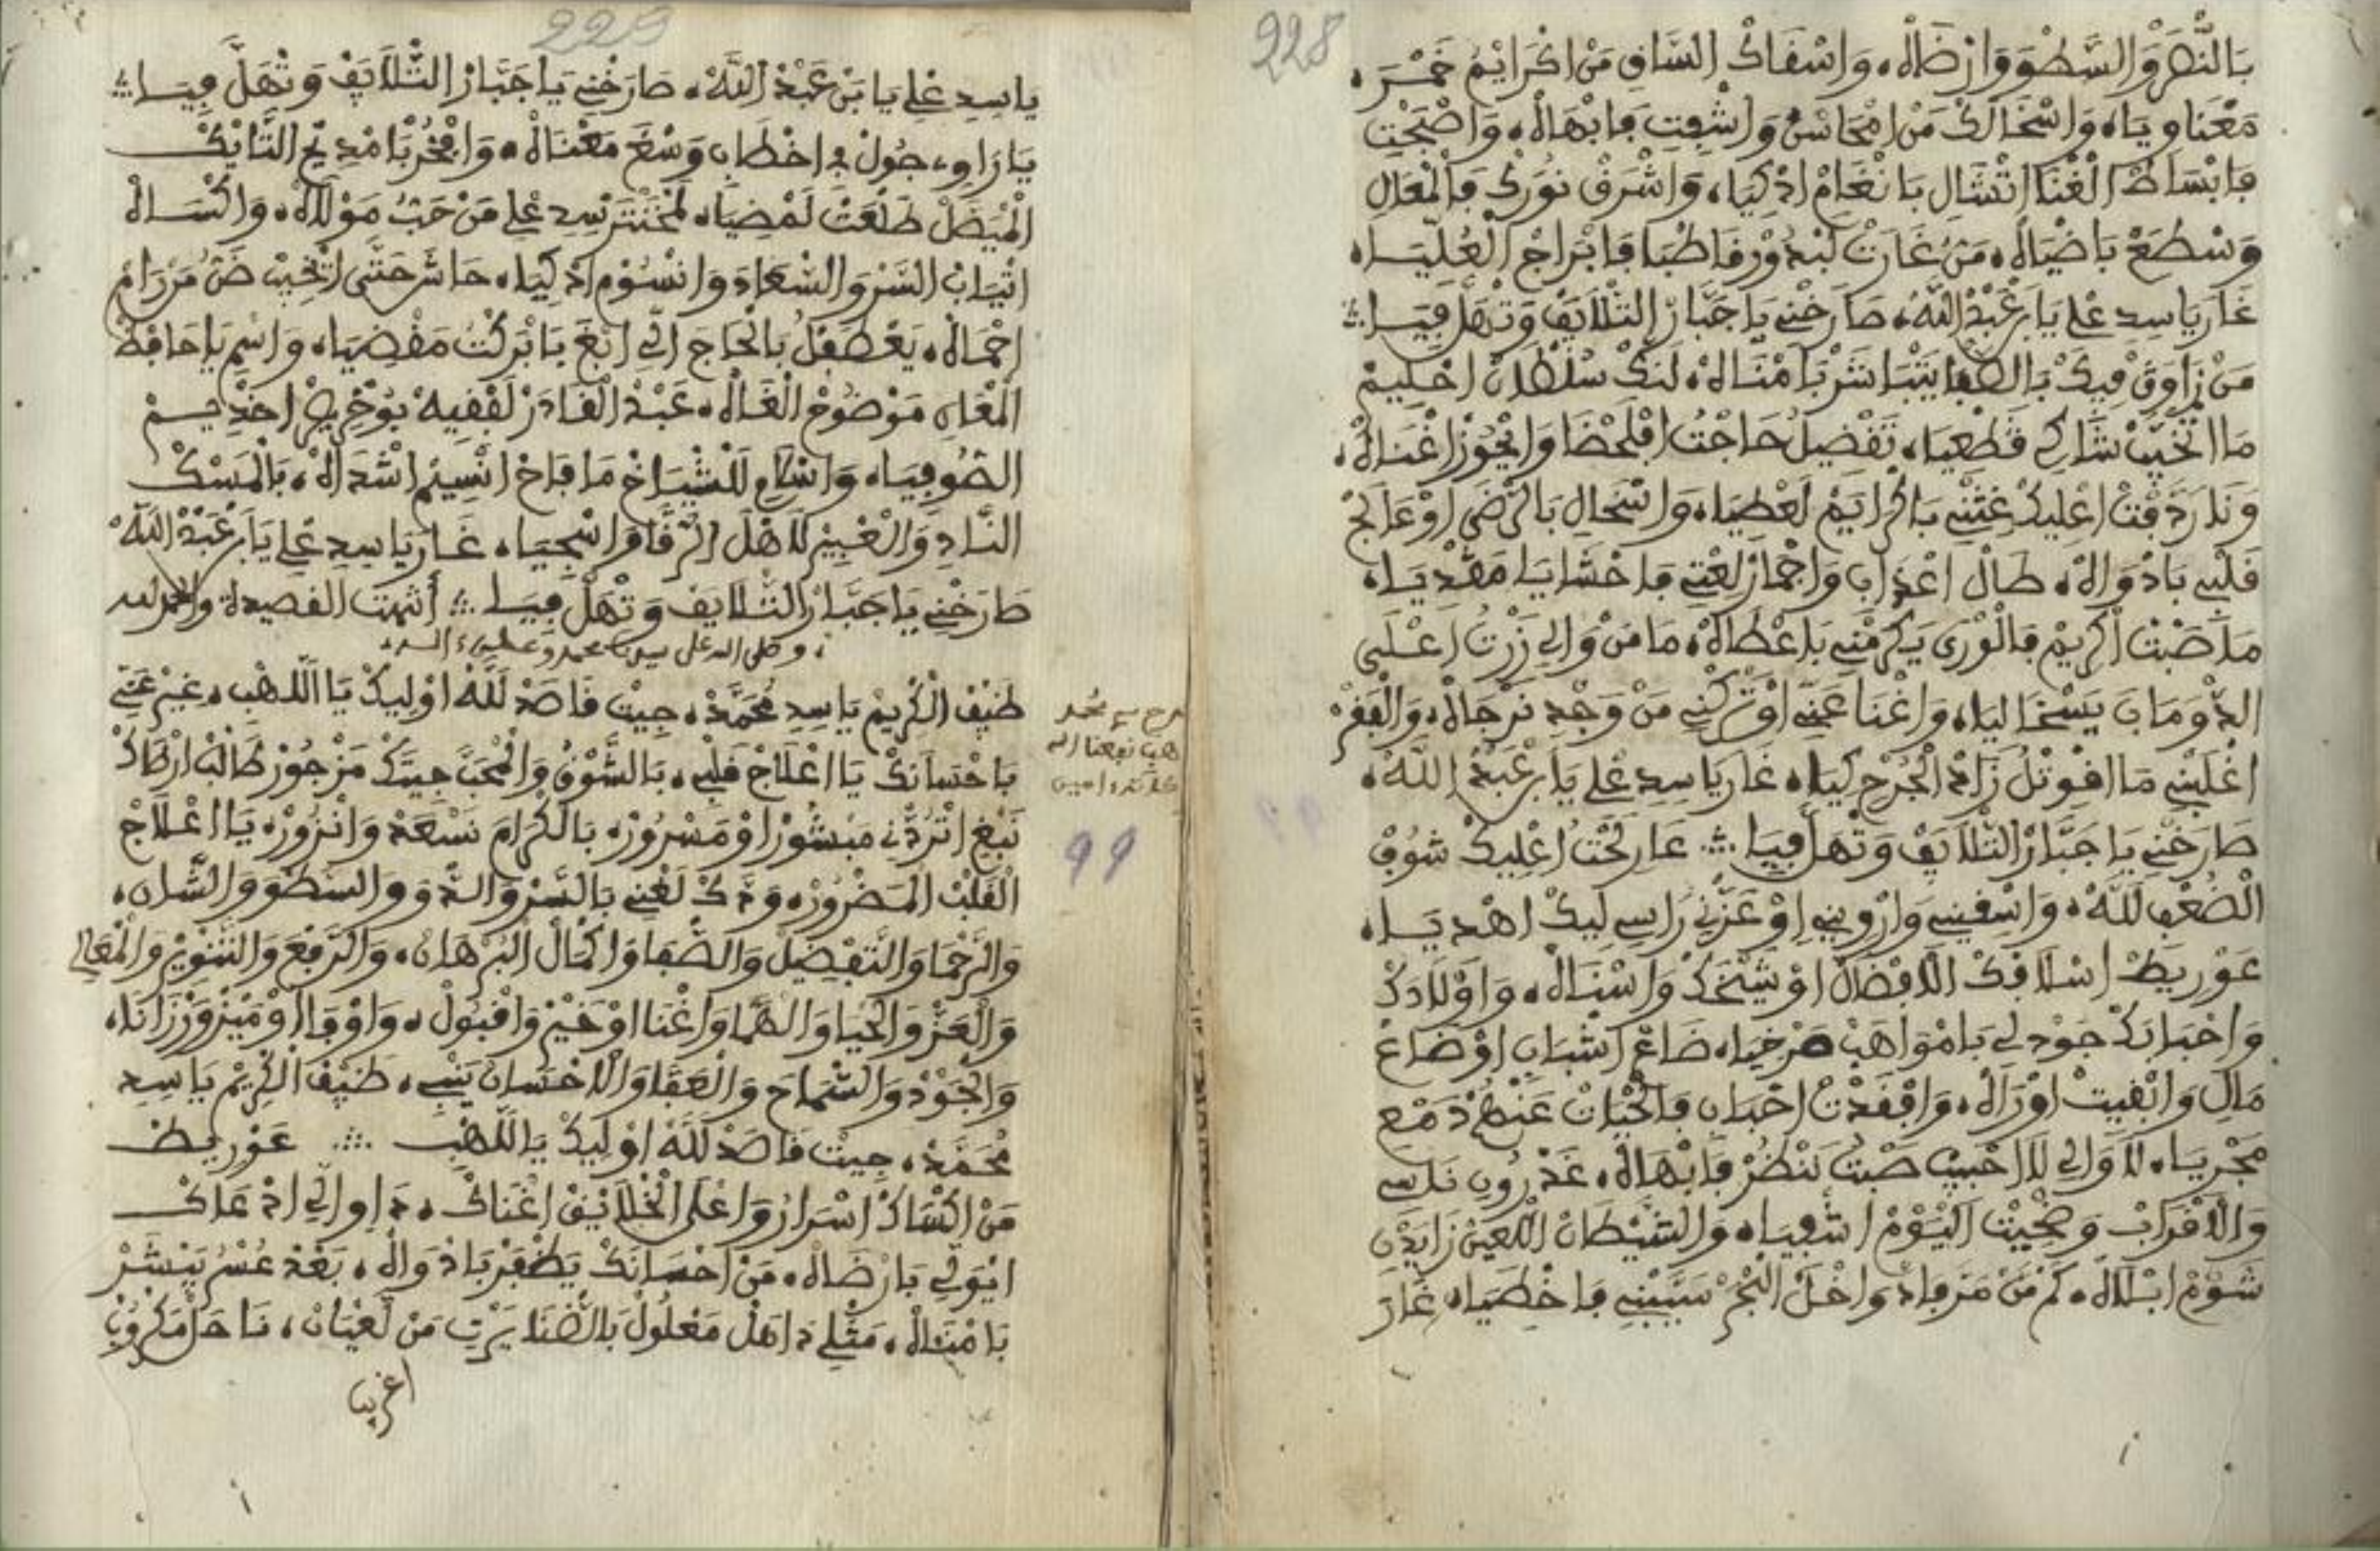 228
بَالنَّصَرْ وَالسَّطْوَ وَارْضَاهْ، وَاسْقَاكْ السَّاقِ مَنْ اكْرَايَمْ خَمْرَ،
مَعْنَاوِيَاه وَاسْخَالَكْ مَنْ امْحَاسْنُ وَاشْفِيتِ فَابْهَاهْ، وَاضْحِيتِ
فَابْسَاطْ الْغْنَا اتْشَالِ بَانْغَامْ اذْكِيَا، وَاشْرَقْ نُورَكْ فَالْمْعَالِ
وَسْطَعْ بَاضْيَاهْ، مَنُّ غَارَتْ لَبْدُورْ قَاطْبَا فَابْرَاجْ الْعُلِيَّا،
غَارَ يَاسِيدِ عْلِي يَابَنْ عَبْدْ اللَّهْ، صَارَخْنِي يَا جَبَّارْ التّْلَايَفْ وَتْهَلَّ فِيَّا ؞
مَنْ زَاوَقْ فِيكْ بَالصّْفَا يَتْبَاشَرْ بَامْنَاهْ، لَنَّكْ سُلْطَانْ احْلِيمْ
مَا اتْخَيَّبْ شَاكِي قَطْعِيَا، تَقْضِيلُ حَاجْتُ افْلَحْضَا وَايْحُوزْ اغْنَاهْ،
وَنَا رَدْفْتْ اعْلِيكْ غِتْنِي بَاكْرَايَمْ لَعْطِيَا، وَاسْخَالِ بَالرّْضَى اوْعَالَجْ
قَلْبِي بَادْوَاهْ، طَالْ اعْذَابِ وَاجْمَارْ لَعْتِي فَاحْشَايَا مَقْدِيَا،
مَا صَبْتْ اكْرِيمْ فَالْوْرَى يَكْرَمْنِي بَاعْطَاهْ، مَا مَنْ وَالِي زَرْتُ اعْلَى
الدّْوَ مَابَ يَسْخَا لِيَا، وَاغْنَا عَنِّي اوْتَرْكْنِي مَنْ وَجْدِ نَرْجَاهْ، وَالْفَقْرْ
اغْلَبْنِي مَا اقْوِيتْلُ زَادْ الْجُرْحْ كِيَا، غَارَ يَاسِيدِ عْلِي يَابَنْ عَبْدْ اللَّهْ،
صَارَخْنِي يَا جَبَّارْ التّْلَايَفْ وَتْهَلَّ فِيَّا ؞ عَارِ لَحْتُ اعْلِيكْ شُوفْ
الْضُعْفِ لَلَّهْ، وَاسْقِينِي وَارْوِينِي اوْعَزْنِي رَاسِي لِيكْ اهْدِيَا،
عَوْرِيطْ اسْلَافَكْ الَافْضَالْ اوْشَيْخَكْ وَاسْنَاهْ، وَاوْلَادَكْ
وَاحْبَابَكْ جَوْدْ لِي بَامْوَاهَبْ مَرْخِيَا، ضَاعْ اشْبَابِ اوْضَاعْ
مَالِ وَابْقِيتْ اوْرَاهْ، وَافْقَدْتْ احْبَابِ فَالْحْيَاتْ عَنْهُمْ دَمْعِ
مَجْرِيَا، لَا وَالِي لَا احْبِيبْ صَبْتُ نَنْظُرْ فَابْهَاهْ، غَدْرُونِ نَاسِي
وَالَاقْرَابْ وَضْحِيتْ الْيُوْمْ اشْفِيَا، وَالشَّيْطَانْ الّْعِينْ زَايَدْنِ
شُوْمْ ابْلَاهْ، كَمْ مَنْ مَرْفَادْ وَاحْلْ الْبْحَرْ سَيَّبْنِي فَاخْطِيَا، غَارَ
229
يَاسِيدِ عْلِي يَابَنْ عَبْدْ اللَّهْ، صَارَخْنِي يَا جَبَّارْ التّْلَايَفْ وَتْهَلَّ فِيَّا ؞
يَا رَاوِي جُولْ فِ اخْطَابِ وَسْغَ مَعْنَاهْ، وَافْخُرْ بَامْدِيحْ النَّايَكْ
الْفَيْضَلْ طَلْعَتْ لَمْضِيَا، لَمْخَنْتَرْ سِيدِ عْلِي مَنْ حَبُّ مَوْلَاهْ، وَاكْسَاهْ
اتْيَابْ السَّرْ وَالسّْعَادَ وَانْسُومْ اذْكِيَا، حَاشَ حَتَّى اتْخِيبْ ضَنّْ مَنْ رَامْ
احْمَاهْ، يَعْطَفْلُ بَالْحَاجَ الِّي ابْغَ بَابْرَكْتُ مَقْضِيَا، وَاسْمِ يَا حَافِظْ
الْمْعَانِ مَوْضُوحْ الْقَاهْ، عَبْدْ الْقَادَرْ لَفْقِيهْ بُوخْرِيصْ اخْدِيمْ
الصُّوفِيَا، وَاسْلَامِ لَلْشْيَاخْ مَا فَاحْ انْسِيمْ اشْدَاهْ، بَالْمَسْكْ
النَّادِ وَالْعْبِيرْ لَاهْلْ الرّْقَا وَاسْجِيَا، غَارَ يَاسِيدِ عْلِي يَابَنْ عَبْدْ اللَّهْ
صَارَخْنِي يَا جَبَّارْ التّْلَايَفْ وَتْهَلَّ فِيَّا ؞ أنتهت القصيدة والحمد لله
وصلى الله على سيدنا محمد وعلى اله،
ضَيْفْ الْكْرِيمْ يَاسِيدِ مُحَمَّدْ، جِيتْ قَاصَدْ لَلَّهْ اوْلِيكْ يَا اللَّهْبِ، غِيرْ غِتْنِي
بَاحْسَانَكْ يَا اعْلَاجْ قَلْبِي، بَالشُّوْقْ وَالْمْحَبَّ جِيتَكْ مَزْجُورْ طَالَبْ ارْضَاكْ
نَبْغِ اتْرُدّْنِي مَبْشُورْ اوْمَسْرُورْ، بَالْكْرَامَ نَسْعَدْ وَانْزُورْ، يَا اعْلَاجْ
الْقَلْبْ الْمَضْرُورْ، وَدَّكْ لَغْنِي بَالسَّرْ وَالدّْوَ وَالسَّطْوَ وَالشَّانِ،
وَالرَّحْمَا وَالتَّفْضِيلْ وَالصّْفَا وَاكْمَالْ الْبَرْهَانْ، وَالرَّفْعَ وَالتَّنْوِيرْ وَالْمْعَالِي
وَالْعَزّْ وَالْحْيَا وَالْهْمَّا وَاغْنَا اوْخَيْرْ وَاقْبُولْ، وَاوْفَا اوْمِيزْ وَرْزَانَا،
وَالْجُوْدْ وَالسّْمَاحْ وَالْعْفَا وَالَاحْسَانْ يَنْبِي، ضَيْفْ الْكْرِيمْ يَاسِيدِ
مُحَمَّدْ، جِيتْ قَاصَدْ لَلَّهْ اوْلِيكْ يَا اللَّهْبِ ؞ عَوْرِيطْ
مَنْ اكْسَاكْ اسْرَارُ وَاعْلَى الْخْلَايَقْ اغْنَاكْ، دَاوِالِي ادْعَاكْ
ايْوَلِّي بَارْضَاهْ، مَنْ احْسَانَكْ يَظْفَرْ بَادْوَاهْ، بَعْدْ عُسْرُ يَبْشَرْ
بَامْنَاهْ، مَثْلِي دَاهَلْ مَعْلُولْ بَالضّْنَا يَبْرَى مَنْ لَعْيَانْ، نَاحَلْ مَكْرُوبْ
اغريب
99